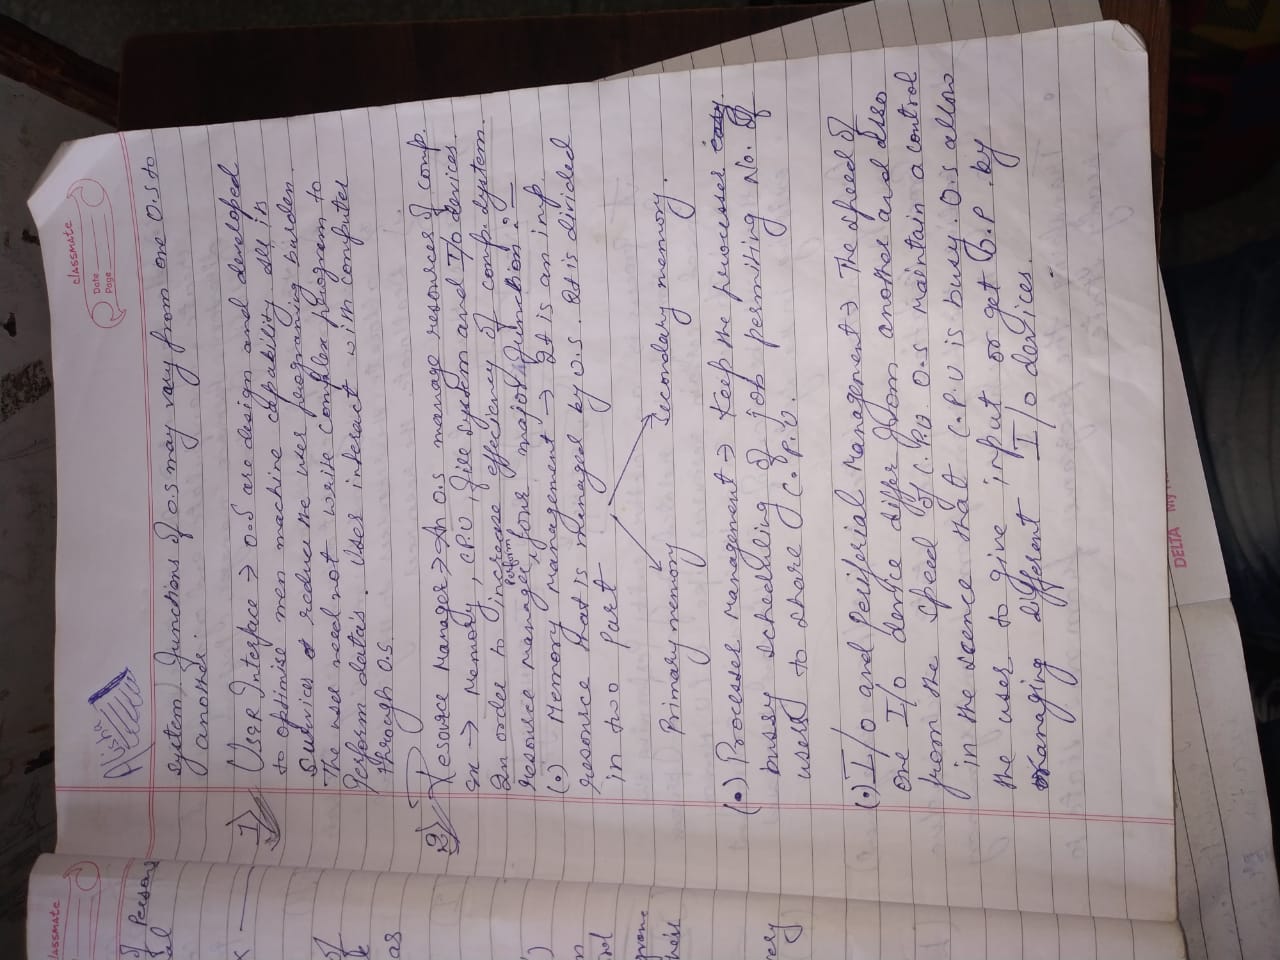 classmate
Date
Page
Alisha
system). Functions of O.S may vary from one O.S to
another:
1) User Interface → O.S are design and developed
to optimise men machine capability. All its
survices reduce the user programing burden.
The used need not write complex program to
Perform data's. User interact with computer
through O.S.
2) Resource Manager → An O.S manage resources of comp.
ex → Memory, CPU, file system and I/O devices.
In order to increase effeciency of comp. system.
resource manager perform four major function :-
(•) Memory Management → It is an imp.
resource that is managed by O.S. It is divided
in two part
Primary memory Secondary memory.
(•) Processer Management → Keep the processer easy
bussy scheduling of job permiting No. of
users to share C.P.U.
(•) I/O and Periferial Management → The speed of
one I/O device differ from another and also
from the speed of C.P.U. O.S Maintain a control
in the scence that C.P.U is busy. O.S allow
the user to give input or get O.P by
managing different I/O devices.
classmate
of Persons
of
as
very
DELTA My